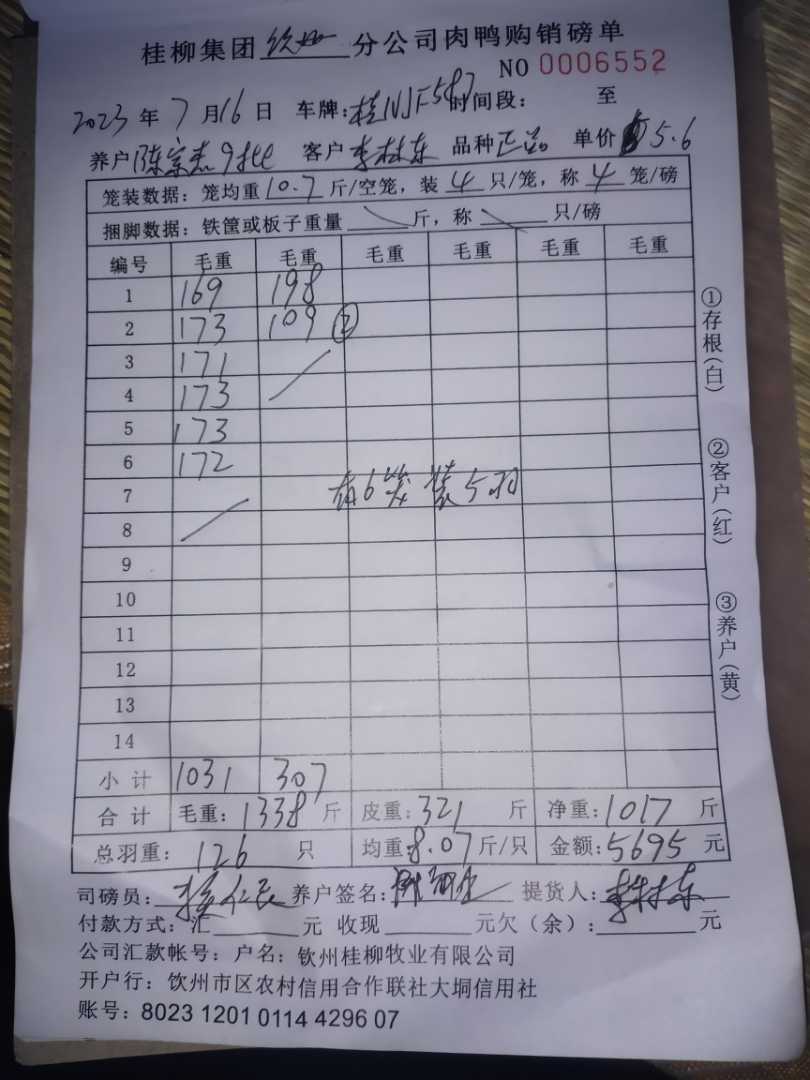 桂柳集团钦州分公司肉鸭购销磅单
NO 0006552
2023年7月16日 车牌:桂NJF587 时间段: 至
养户陈宗杰9批 客户李林东 品种正品 单价5.6
笼装数据:笼均重10.7斤/空笼,装4只/笼,称4笼/磅
捆脚数据:铁筐或板子重量 斤,称 只/磅
编号 毛重 毛重 毛重 毛重 毛重 毛重
1 169 198
2 173 109 ②
3 171
4 173
5 173
6 172
7 有6笼装5羽
8
9
10
11
12
13
14
小计 1031 307
合计 毛重:1338斤 皮重:321斤 净重:1017斤
总羽重:126只 均重:8.07斤/只 金额:5695元
司磅员: 养户签名: 提货人:李林东
付款方式:汇 元 收现 元欠(余): 元
公司汇款帐号:户名:钦州桂柳牧业有限公司
开户行:钦州市区农村信用合作联社大垌信用社
账号:8023 1201 0114 4296 07
①存根(白)
②客户(红)
③养户(黄)